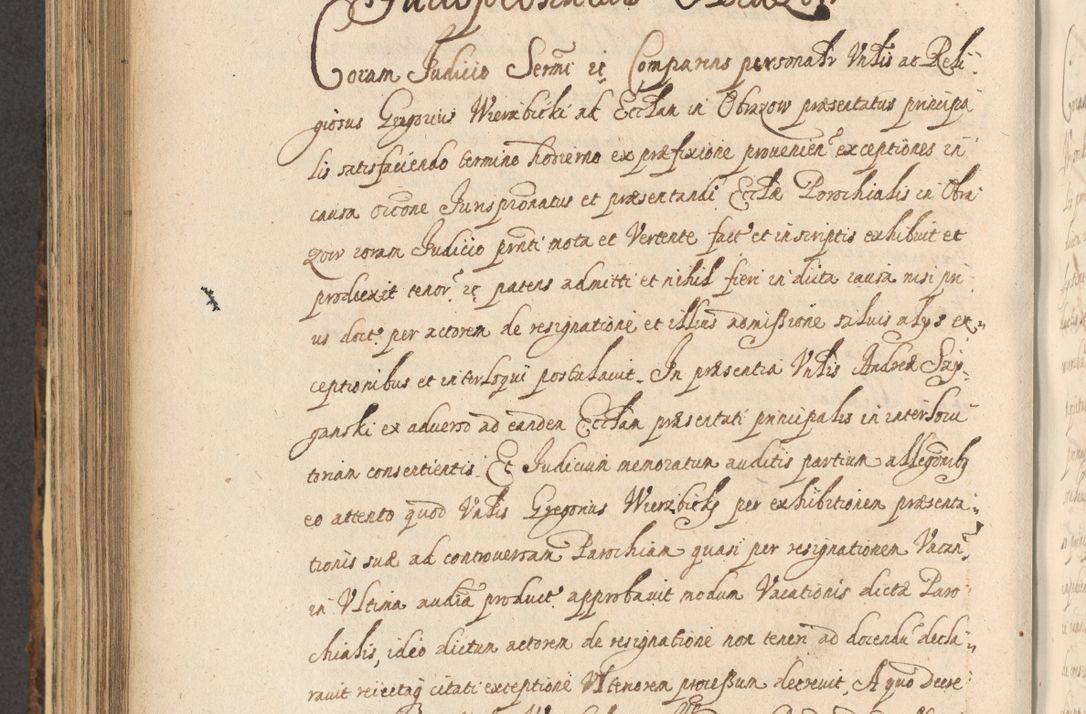 Jurispronatus Obrazow
Coram Judicio Sermi et Comparens personalr Vnlis ac Reli
giosus Gregorius Wierzbicki ad Ecclam in Obrazow præsentatus principa
lis satisfaciendo termino hodierno ex præfixione provenien exceptiones in
causa oĩcone Jurispronatus et præsentandi Ecclæ Parochialis in Obra
zow coram Judicio prnti mota et Vertente fact et in scriptis exhibuit et
produxit tenor et patens admitti et nihil fieri in dicta causa nisi pri
us doct per actorem de resignatione et illius admissione salvis alys ex
ceptionibus et interloqui postulavit. In præsentia Vnlis Andreæ Szy
ganski ex adverso ad eandem Ecclam præsentati principalis in interlocu
toriam consentientis. Et Judicium memoratum auditis partium allegõnibq
eo attento quod Vnlis Gregorius Wierzbicky per exhibitionem præsenta
tionis suæ ad controversam Parochiam quasi per resignationem Vacan
in Vltima audia product approbavit modum Vacationis dictæ Paro
chialis, ideo dictum actorem de resignatione non teneri ad docendũ decla
ravit reiectaq citati exceptione Vlteriorem processum decrevit. A quo Decre